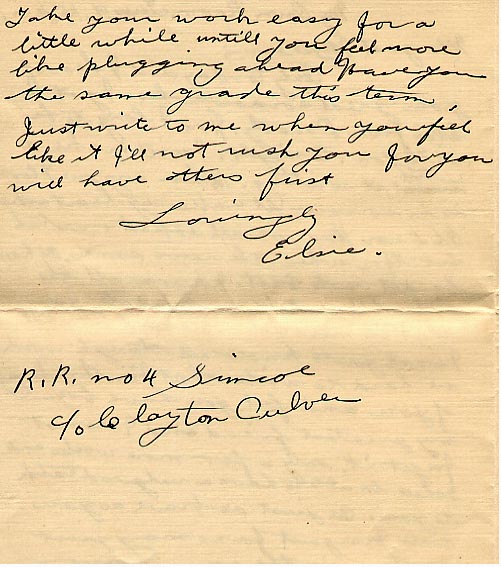 Take your work easy for a
little while untill you feel more
like plugging ahead Have you
the same grade this term,
Just write to me when you feel
like it I'll not rush you for you
will have others first
Lovingly
Elsie.
R.R. no 4 Simcoe
c/o Clayton Culver